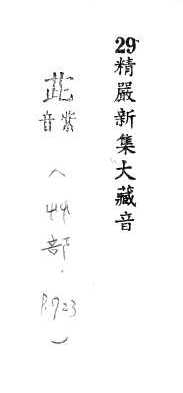 29精嚴新集大藏音
茈
音紫
(艸部.
P.723)